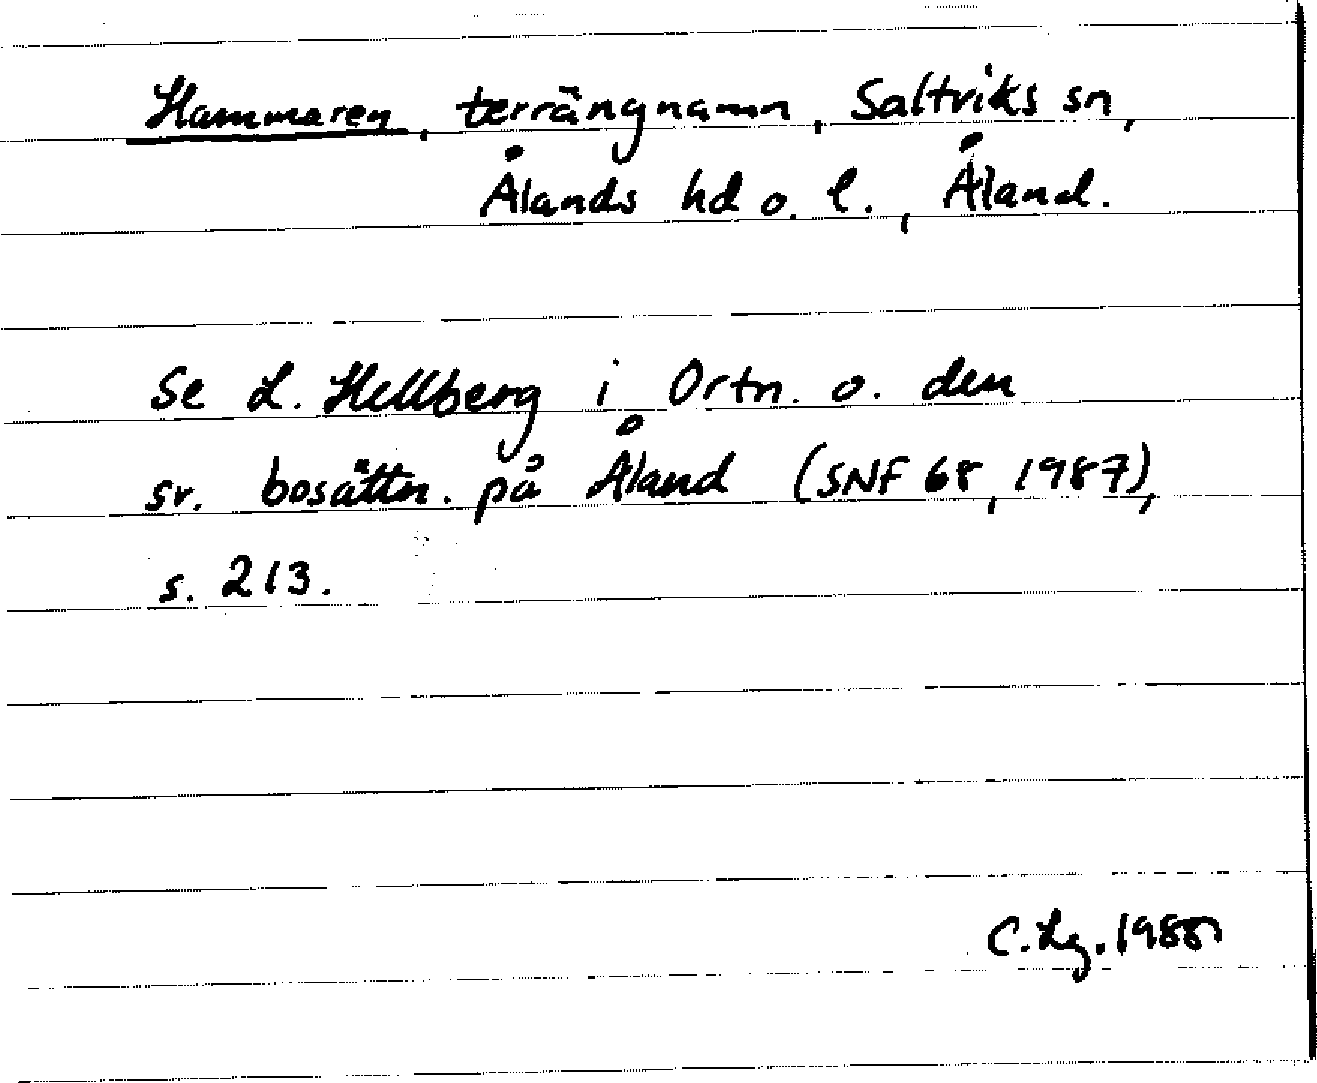 Hammaren, terrängnamn, Saltviks sn,
Ålands hd o. l., Åland.
Se L. Hellberg i Ortn. o. den
sv. bosättn. på Åland (SNF 68, 1987),
s. 213.
C. Lg. 1988